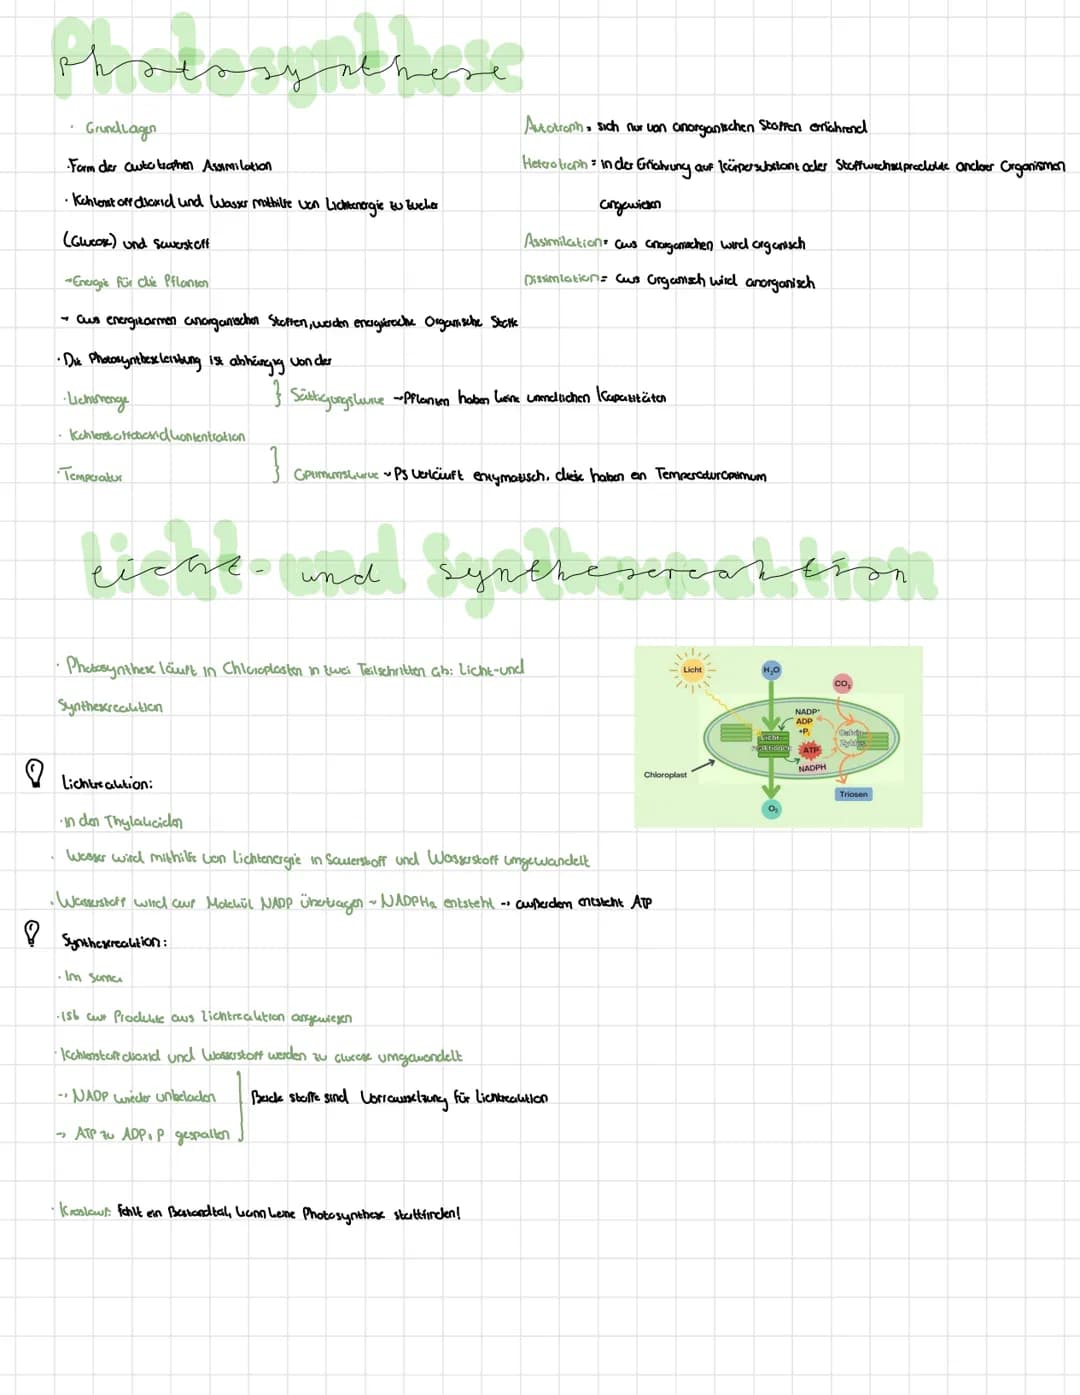 Photosynthese
· Grundlagen
·Form der autotrophen Assimilation
· Kohlenstoffdioxid und Wasser mithilfe von Lichtenergie zu Zucker
(Glucose) und Sauerstoff
→Energie für die Pflanzen
→ aus energiearmen anorganischen Stoffen, werden energiereiche Organische Stoffe
· Die Photosyntheseleistung ist abhängig von der
·Lichtmenge
· Kohlenstoffdioxidkonzentration
} Sättigungskurve →Pflanzen haben keine unendlichen Kapazitäten
·Temperatur
} Optimumskurve ~ PS verläuft enzymatisch, diese haben ein Temperaturoptimum
Autotroph = sich nur von anorganischen Stoffen ernährend
Heterotroph = in der Ernährung auf Körpersubstanz oder Stoffwechselprodukte anderer Organismen
angewiesen
Assimilation= aus anorganischen wird organisch
Dissimilation= aus Organisch wird anorganisch
Licht- und Synthesereaktion
· Photosynthese läuft in Chloroplasten in zwei Teilschritten ab: Licht-und
Synthesereaktion
Lichtreaktion:
·in den Thylakoiden
· Wasser wird mithilfe von Lichtenergie in Sauerstoff und Wasserstoff umgewandelt
·Wasserstoff wird auf Molekül NADP übertragen ~ NADPH₂ entsteht → außerdem entsteht ATP
Synthesereaktion:
·Im
·Ist auf Produkte aus Lichtreaktion angewiesen
·Kohlenstoffdioxid und Wasserstoff werden zu Glucose umgewandelt
→ NADP wieder unbeladen
→ ATP zu ADP, P gespalten
Beide Stoffe sind Vorraussetzung für Lichtreaktion
· Kreislauf: fehlt ein Bestandteil, kann keine Photosynthese stattfinden!
Licht
H₂O
CO₂
NADP⁺
ADP
+Pᵢ
Licht-
reaktionen
Calvin-
Zyklus
ATP
NADPH
Chloroplast
Triosen
O₂